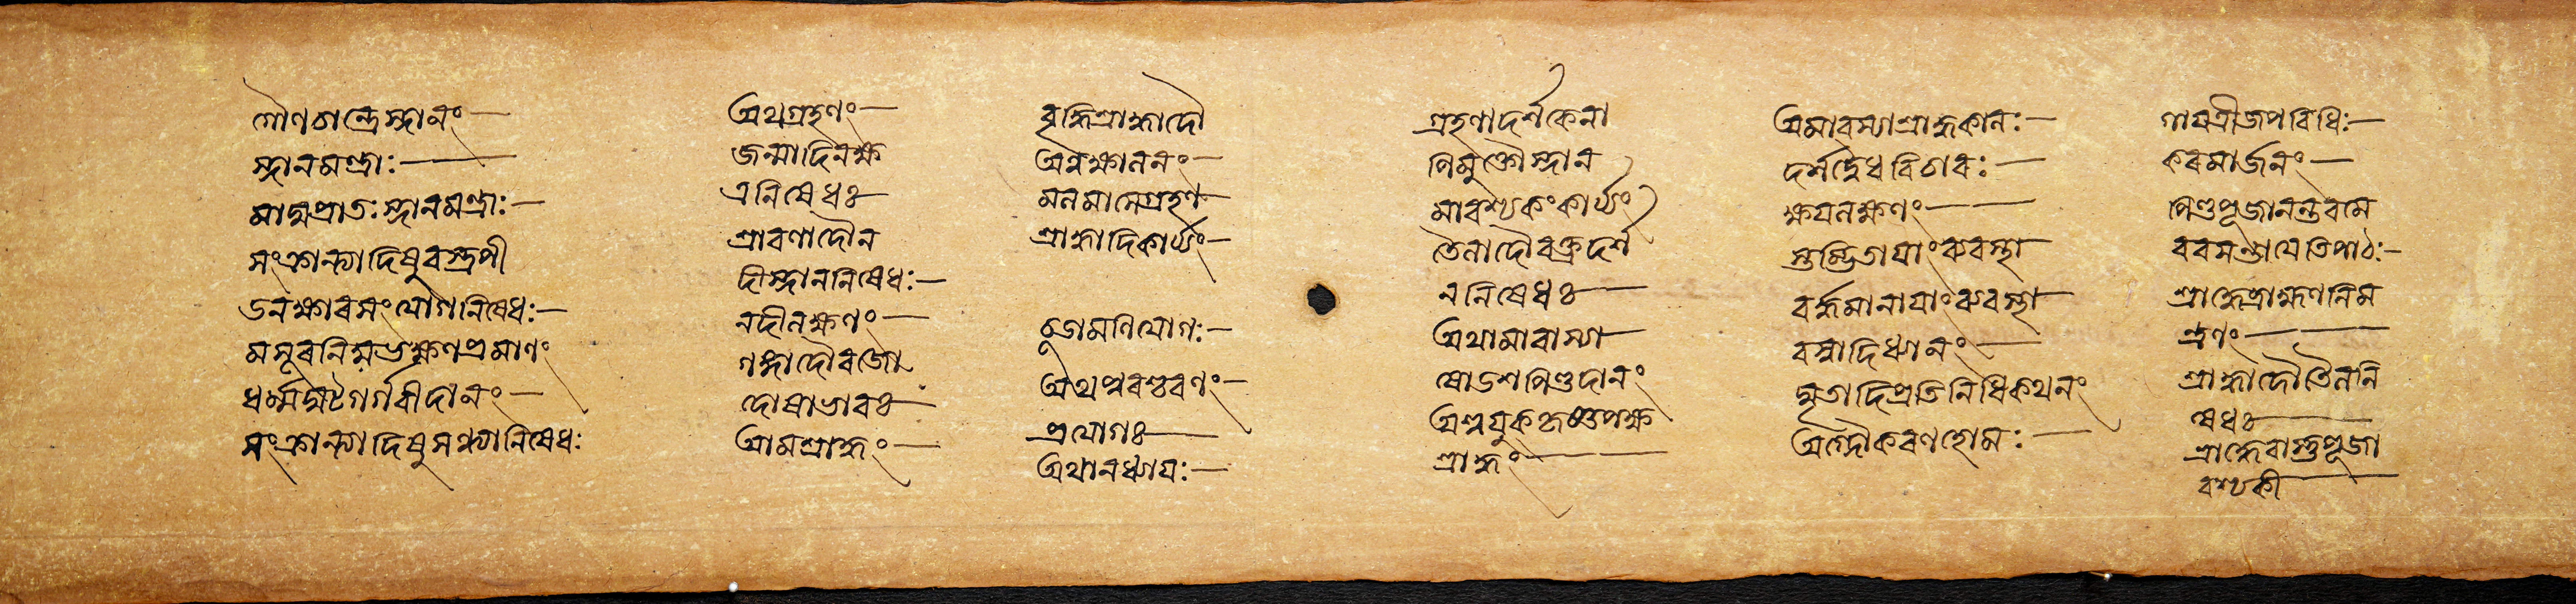 গৌণচান্দ্রেস্নানং—
স্নানমন্ত্রাঃ—
মাঘপ্রাতঃস্নানমন্ত্রাঃ—
সংক্রান্ত্যাদিষুবস্ত্রপী
ডনক্ষারসংযোগনিষেধঃ—
মসূরনিম্বভক্ষণপ্রমাণং
ধর্ম্মঘটৈর্গর্বীদানং—
সংক্রান্ত্যাদিষুসন্ধ্যানিষেধঃ
অথগ্রহণং—
জন্মাদিনক্ষ
ত্রনিষেধঃ
শ্রাবণাদৌন
দীস্নাননিষেধঃ—
নদীলক্ষণং—
গঙ্গাদৌরজো
দোষাভাবঃ
আমশ্রাদ্ধং—
বৃদ্ধিশ্রাদ্ধাদৌ
অন্নক্ষালনং—
মলমাসেগ্রহণ
শ্রাদ্ধাদিকার্য্যং—
চূড়ামণিযোগঃ—
অথপুরশ্চরণং—
প্রযোগঃ
অথানধ্যাযঃ—
গ্রহণাদর্শকেনা
পিমুক্তৌস্নান
মাবশ্যকংকার্য্যং
তৈলাদৌবক্ত্রদর্শ
ননিষেধঃ
অথামাবাস্যা
ষোডশপিণ্ডদানং
অশ্বযুক্কৃষ্ণপক্ষ
শ্রাদ্ধং—
অমাবস্যাশ্রাদ্ধকালঃ—
দর্শদ্বৈধবিচারঃ—
ক্ষযলক্ষণং—
স্তম্ভিতাযাংব্যবস্থা
বর্দ্ধমানাযাংব্যবস্থা
বস্বাদিধ্যানং—
ঘৃতাদিপ্রতিনিধিকথনং
অগ্নৌকরণহোমঃ—
গাযত্রীজপবিধিঃ—
করমার্জনং—
পিণ্ডপূজানন্তরমে
বরসন্তাযেতিপাঠঃ—
শ্রাদ্ধেব্রাহ্মণনিম
ন্ত্রণং—
শ্রাদ্ধাদৌতৈলনি
ষেধঃ
শ্রাদ্ধেবাস্তুপূজা
বশ্যকী